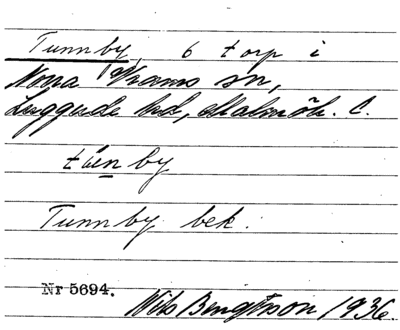 Tunnby, 6 torp i
Norra Vrams sn,
Luggude hd, Malmöh. l.
Tunnby bek.
Nr 5694.
Nils Bengtsson 1936.